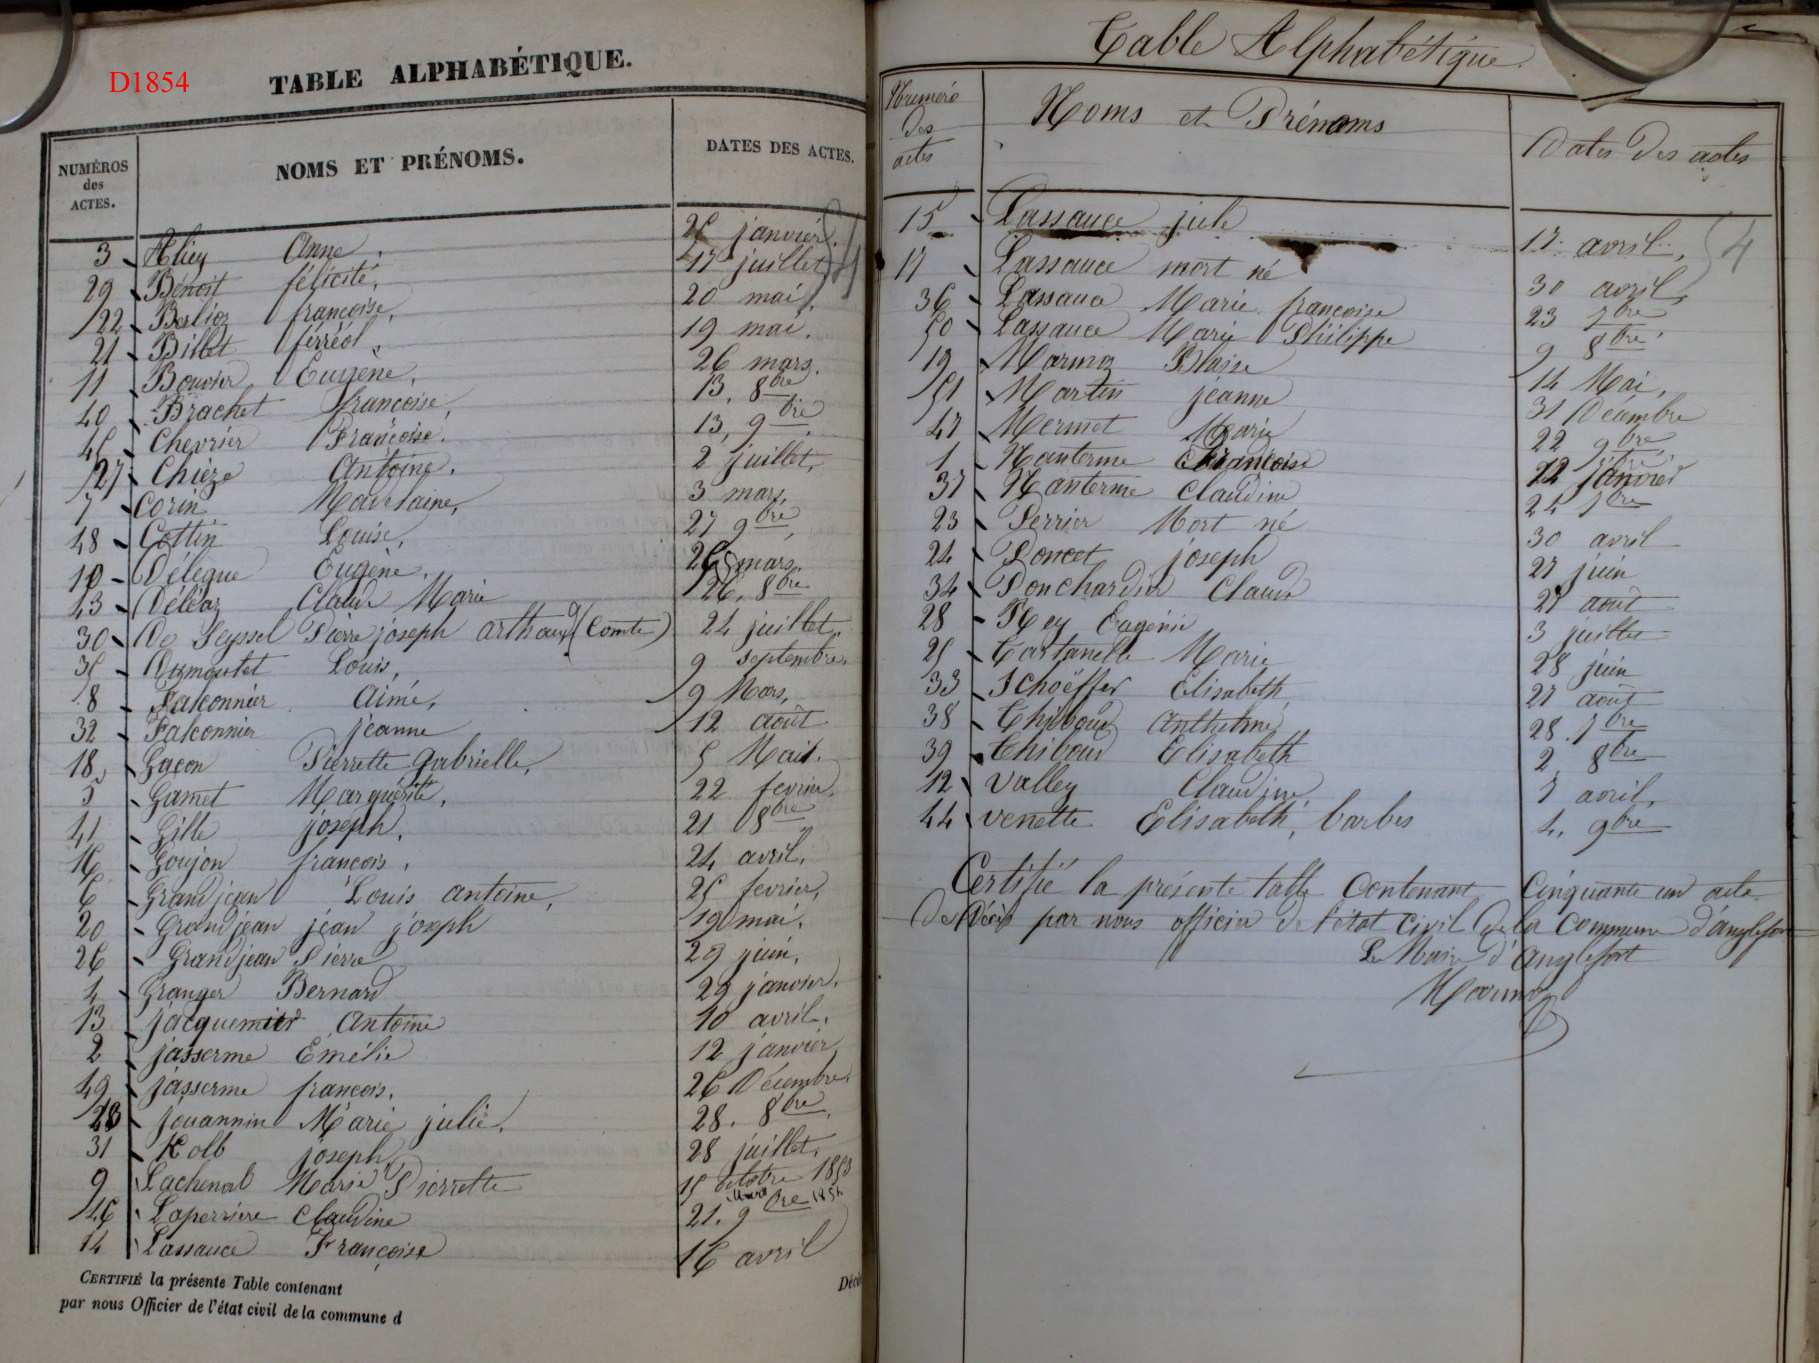 D1854
TABLE ALPHABÉTIQUE.
NUMÉROS des ACTES. NOMS ET PRÉNOMS. DATES DES ACTES.
3 Anne 25 janvier
29 Benoit félicité, 17 juillet
22 Berlioz françoise, 20 mai,
21 Billet férréol, 19 mai.
11 Bouvier Eugène, 26 mars.
40 Brachet Françoise, 13, 8bre
45 Chevrier Françoise. 13, 9bre
27 Chièze Antoine. 2 juillet,
7 Corin 3 mars,
48 Cottin Louise, 27 9bre,
10 Délègue Eugène. 26 mars.
43 Déléaz Claude Marie 26, 8bre
30 De Seyssel Pierre joseph arthaud (Comte) 24 juillet.
35 Louis, 9 septembre.
8 Falconnier Aimé, 9 Mars,
32 Falconnier jeanne 12 août
18 Gaçon Pierrette gabrielle, 5 Mai.
5 Gamet Marguérite, 22 fevrier.
41 Gille joseph, 21 8bre
16 Goujon françois, 24 avril,
6 Grandjean Louis antoine, 25 fevrier,
20 Grandjean jean joseph 19 mai.
26 Grandjean Pierre 29 juin,
4 Granger Bernard 29 janvier.
13 jacquemier Antoine 10 avril,
2 jasserme Emélie 12 janvier
49 jasserme francois. 26 Décembre.
jouannin Marie julie, 28. 8bre,
31 Kolb joseph 28 juillet,
9 Lachenal Marie Pierrette 15 octobre 1853
46 Laperriere Claudine 21. 9bre 1854
14 Lassauce Françoise 16 avril
CERTIFIÉ la présente Table contenant Décè
par nous Officier de l'état civil de la commune d
Table Alphabétique.
Numéro des actes Noms et Prénoms Dates des actes
15 Lassauce jule 17 avril, 4
17 Lassauce mort né 30 avril,
36 Lassauce Marie françoise 23 7bre
50 Lassauce Marie Philippe 9 8bre.
19 Marmoz Blaise 14 Mai,
51 Martin jeanne 31 Décembre
47 Mermet Marie 22 9bre
1 Nanterme Françoise 12 janvier
37 Nanterme Claudine 24 7bre
23 Perrier Mort né 30 avril
24 Poncet joseph 27 juin
34 Ponchardier Claude 27 août
28 Rey Eugénie 3 juillet
25 Tartanelle Marie 28 juin
33 Schoëffer Elisabeth, 27 août
38 Thiboud Anthelme 28 7bre
39 Thiboud Elisabeth 2 8bre
12 Valley Claudine 5 avril,
44 venette Elisabeth, barbes 4. 9bre
Certifié la présente table Contenant Cinquante un acte
de décès par nous officier de l'état civil de la commune d'anglefort
Le Maire d'anglefort
Marmoz